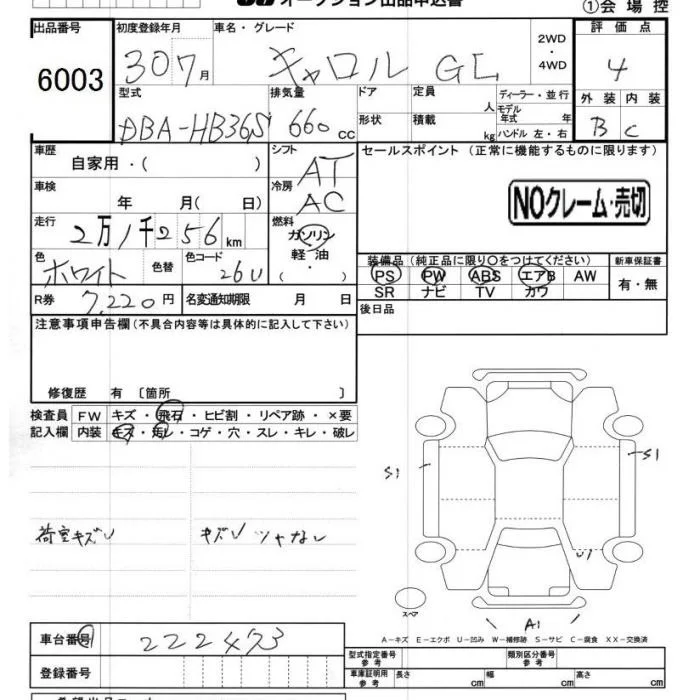 オークション出品申込書
①会場控
出品番号
6003
初度登録年月
30 7月
車名・グレード
キャロル GL
2WD
・
4WD
評価点
4
外装 内装
B C
型式
DBA-HB36S
排気量
660 cc
ドア
形状
定員
人
積載
kg
ディーラー・並行
モデル年式 年
ハンドル 左・右
車歴
自家用・( )
車検
年 月( 日)
走行
2万1千256 km
色
ホワイト
色替
色コード
26U
R券 7,220円
名変通知期限 月 日
シフト
AT
冷房
AC
燃料
ガソリン
軽油
・( )
セールスポイント (正常に機能するものに限ります)
NOクレーム・売切
装備品 (純正品に限り○をつけてください)
PS PW ABS エアB AW
SR ナビ TV カワ
新車保証書
有・無
後日品
注意事項申告欄(不具合内容等は具体的に記入して下さい)
修復歴 有 〔箇所 〕
検査員 FW キズ・飛石・ヒビ割・リペア跡・×要
記入欄 内装 キズ・汚レ・コゲ・穴・スレ・キレ・破レ
荷室キズU
キズU ツヤなし
S1
S1
U1
スペア
A1
A-キズ E-エクボ U-凹み W-補修跡 S-サビ C-腐食 XX-交換済
車台番号
222473
登録番号
型式指定番号
参考
類別区分番号
参考
車庫証明用
参考
長さ cm
幅 cm
高さ cm